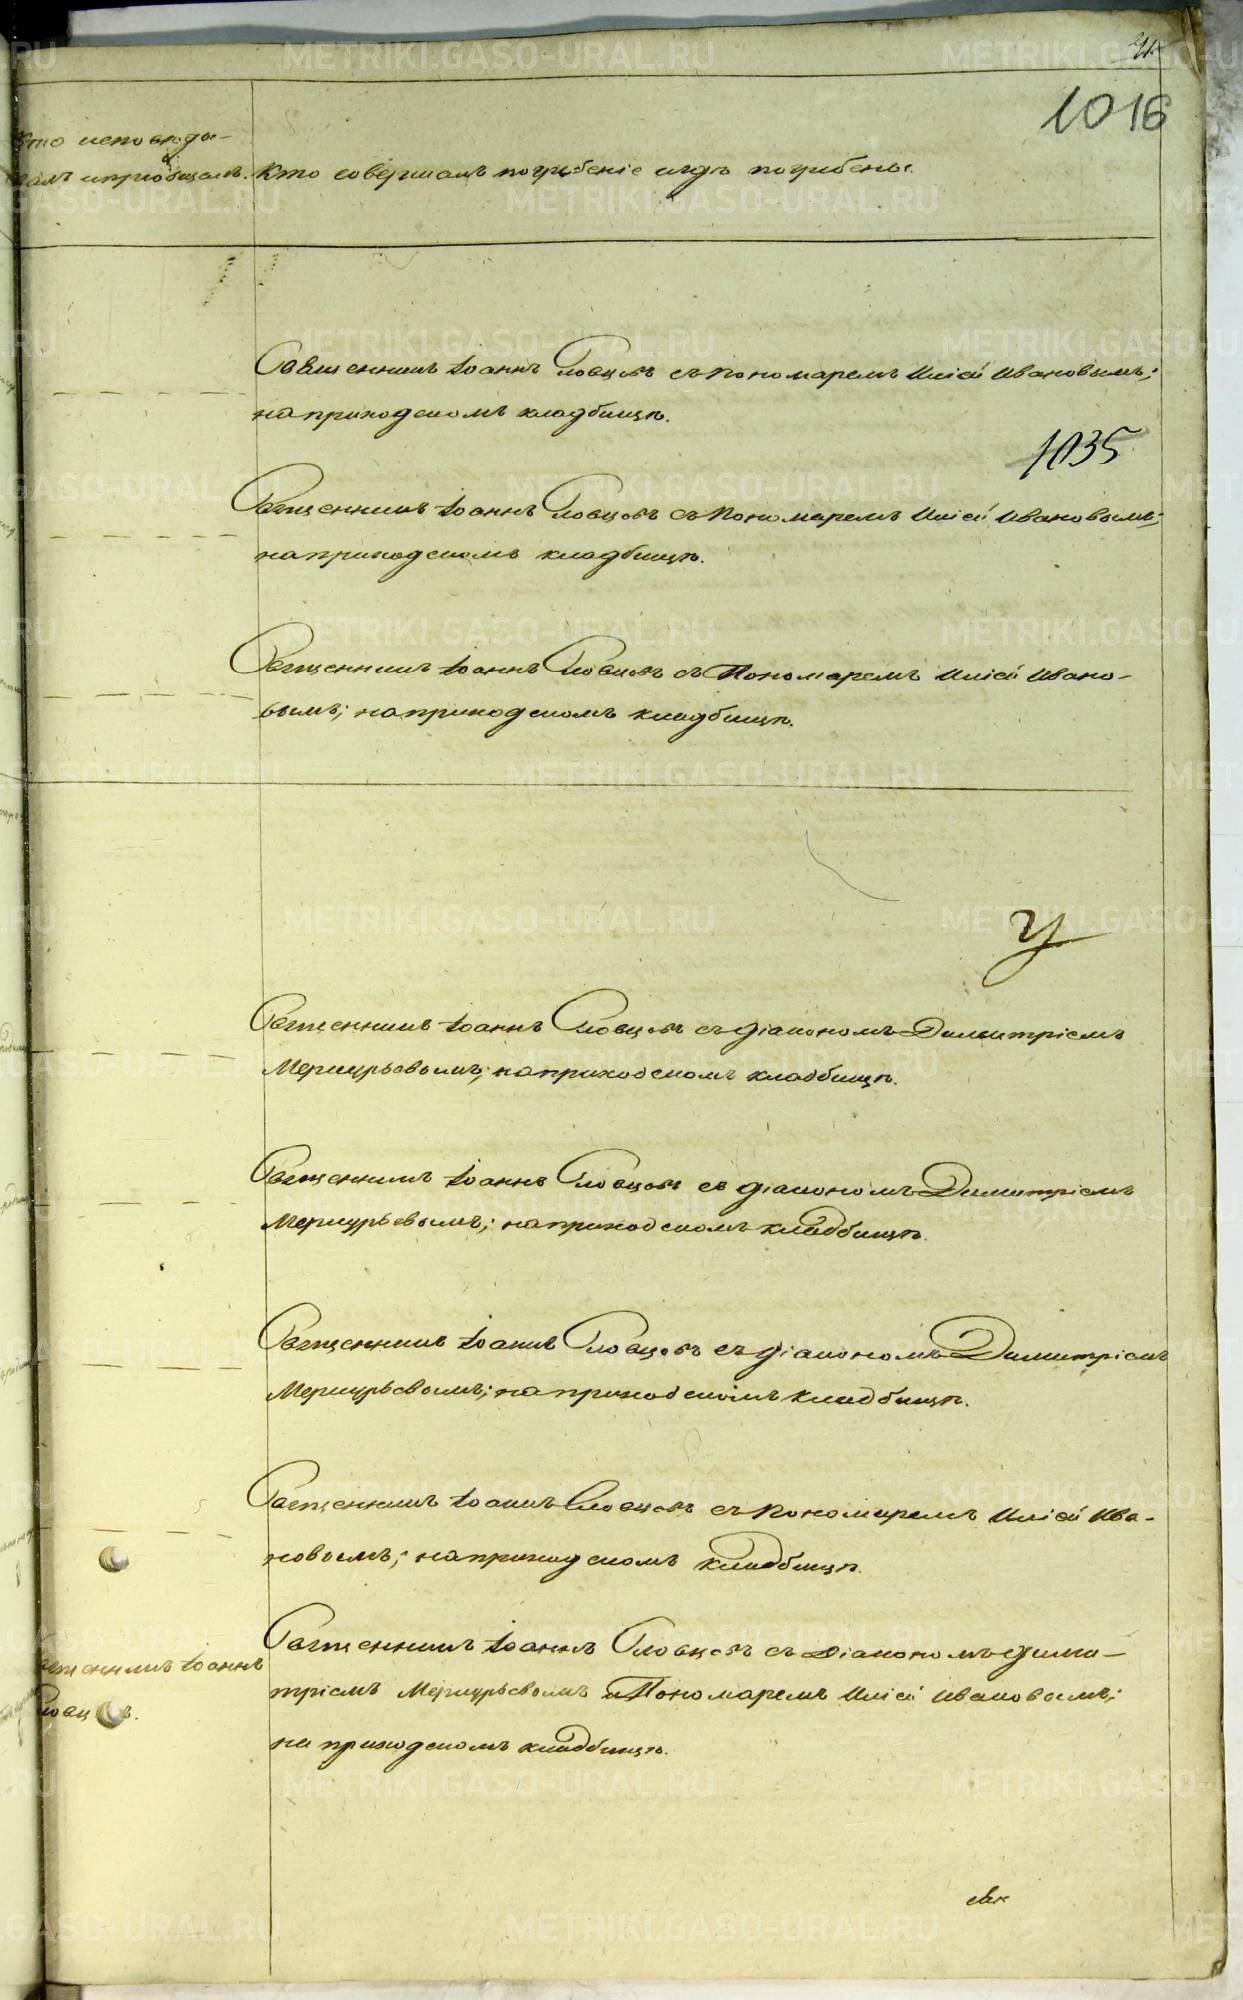 1016
Кто исповѣды-
валъ и пріобщалъ.
Кто совершалъ погребеніе и гдѣ погребены.
Священникъ Іоаннъ Словцовъ съ пономаремъ Иліей Ивановымъ;
на приходскомъ кладбищѣ.
1035
Священникъ Іоаннъ Словцовъ съ Пономаремъ Иліей Ивановымъ;
на приходскомъ кладбищѣ.
Священникъ Іоаннъ Словцовъ съ Пономаремъ Иліей Ивано-
вымъ; на приходскомъ кладбищѣ.
У
Священникъ Іоаннъ Словцовъ съ діакономъ Димитріемъ
Меркурьевымъ; на приходскомъ кладбищѣ.
Священникъ Іоаннъ Словцовъ съ діакономъ Димитріемъ
Меркурьевымъ; на приходскомъ кладбищѣ.
Священникъ Іоаннъ Словцовъ съ діакономъ Димитріемъ
Меркурьевымъ; на приходскомъ кладбищѣ.
Священникъ Іоаннъ Словцовъ съ пономаремъ Иліей Ива-
новымъ; на приходскомъ кладбищѣ.
Священникъ Іоаннъ
Словцовъ.
Священникъ Іоаннъ Словцовъ съ діакономъ Дими-
тріемъ Меркурьевымъ и Пономаремъ Иліей Ивановымъ;
на приходскомъ кладбищѣ.
METRIKI.GASO-URAL.RU